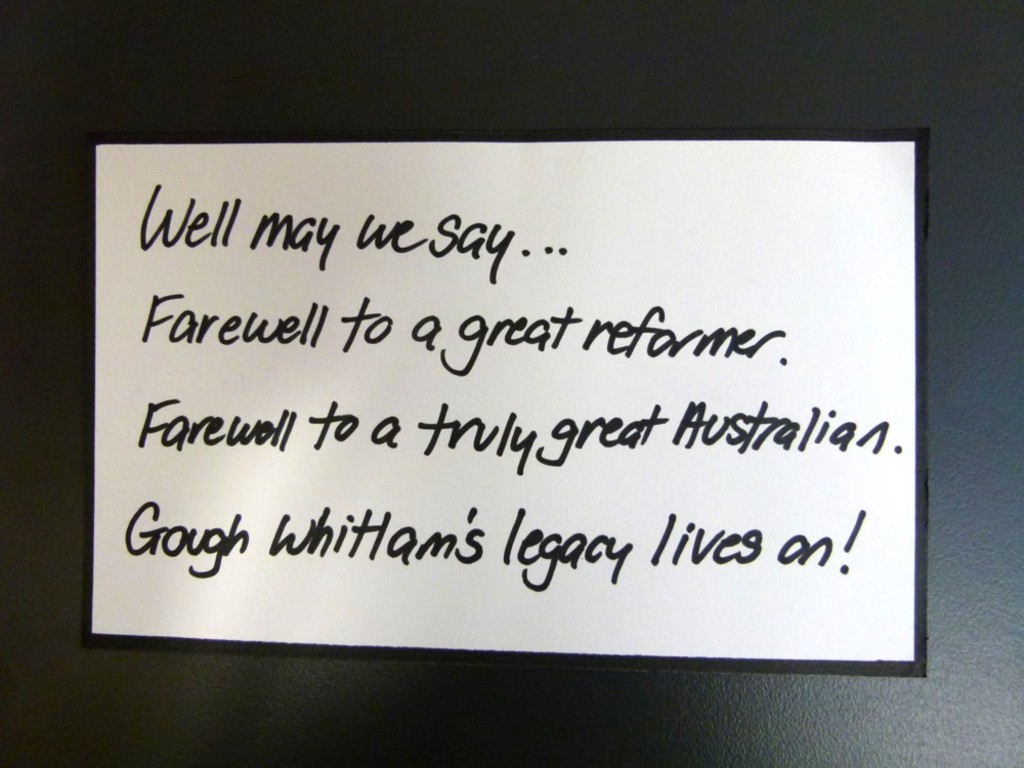 Well may we say...
Farewell to a great reformer.
Farewell to a truly great Australian.
Gough Whitlam's legacy lives on!